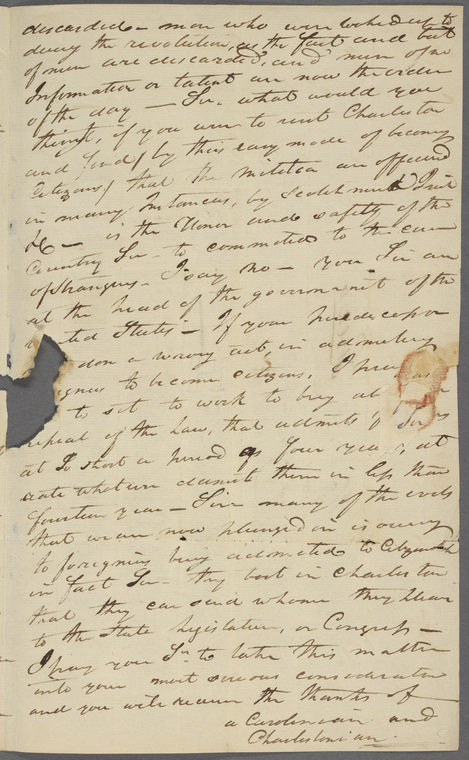 discarded – men who were looked up to
during the revolution, as the first and best
of men are discarded, and men of no
Information or talent are now the order
of the day – Sir, what would you
think, if you were to visit Charleston
and find (by this easy mode of becoming
Citizens) that the militia are officered
in many Instances, by Scotchmen & Irish
&c – is the Honor and safety of the
Country Sir – to committed to the care
of strangers – I say no – you Sir are
at the head of the government of the
ted States – If your predecessor
don a wrong act, in admitting
igners to become citizens, I
to set to work to try at
repeal of the Law, that admits
at so short a period as four years, at
rate whatever admit them in less than
fourteen year – Sir many of the evils
that we are now plunged in is owing
to foreigners being admitted to Citizenship
in fact Sir – they bost in Charleston
that they can send whome they please
to the State legislature, or Congress –
I pray you Sir to take this matter
into your most serious consideration
and you will receive the thanks of
a Carolinian and
Charlestonian.